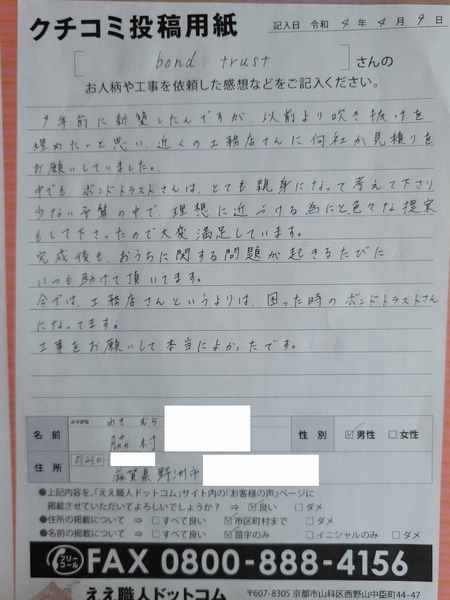 クチコミ投稿用紙
記入日 令和 4年 4月 9日
[bond trust] さんの
お人柄や工事を依頼した感想などをご記入ください。
9年前に新築したんですが、以前より吹き抜けを
埋めたいと思い、近くの工務店さんに何社か見積りを
お願いしていました。
中でも ボンドトラストさんは、とても親身になって考えて下さり
少ない予算の中で、理想に近づける為にと色々な提案
もして下さったので大変満足しています。
完成後も、おうちに関する問題が起きるたびに
いつも助けて頂いてます。
今では、工務店さんというよりは、困った時のボンドトラストさん
になってます。
工事をお願いして本当によかったです。
ふりがな わき むら
名前 脇村
性別 ☑男性 □女性
住所 520
滋賀県野洲市
●上記内容を、「ええ職人ドットコム」サイト内の「お客様の声」ページに
掲載させていただいてよろしいでしょうか？ ⇒ ☑良い □ダメ
●住所の掲載について ⇒ □すべて良い ☑市区町村まで □ダメ
●名前の掲載について ⇒ □すべて良い ☑苗字のみ □イニシャルのみ □ダメ
フリーコール FAX 0800-888-4156
ええ職人ドットコム 〒607-8305 京都市山科区西野山中臣町44-47